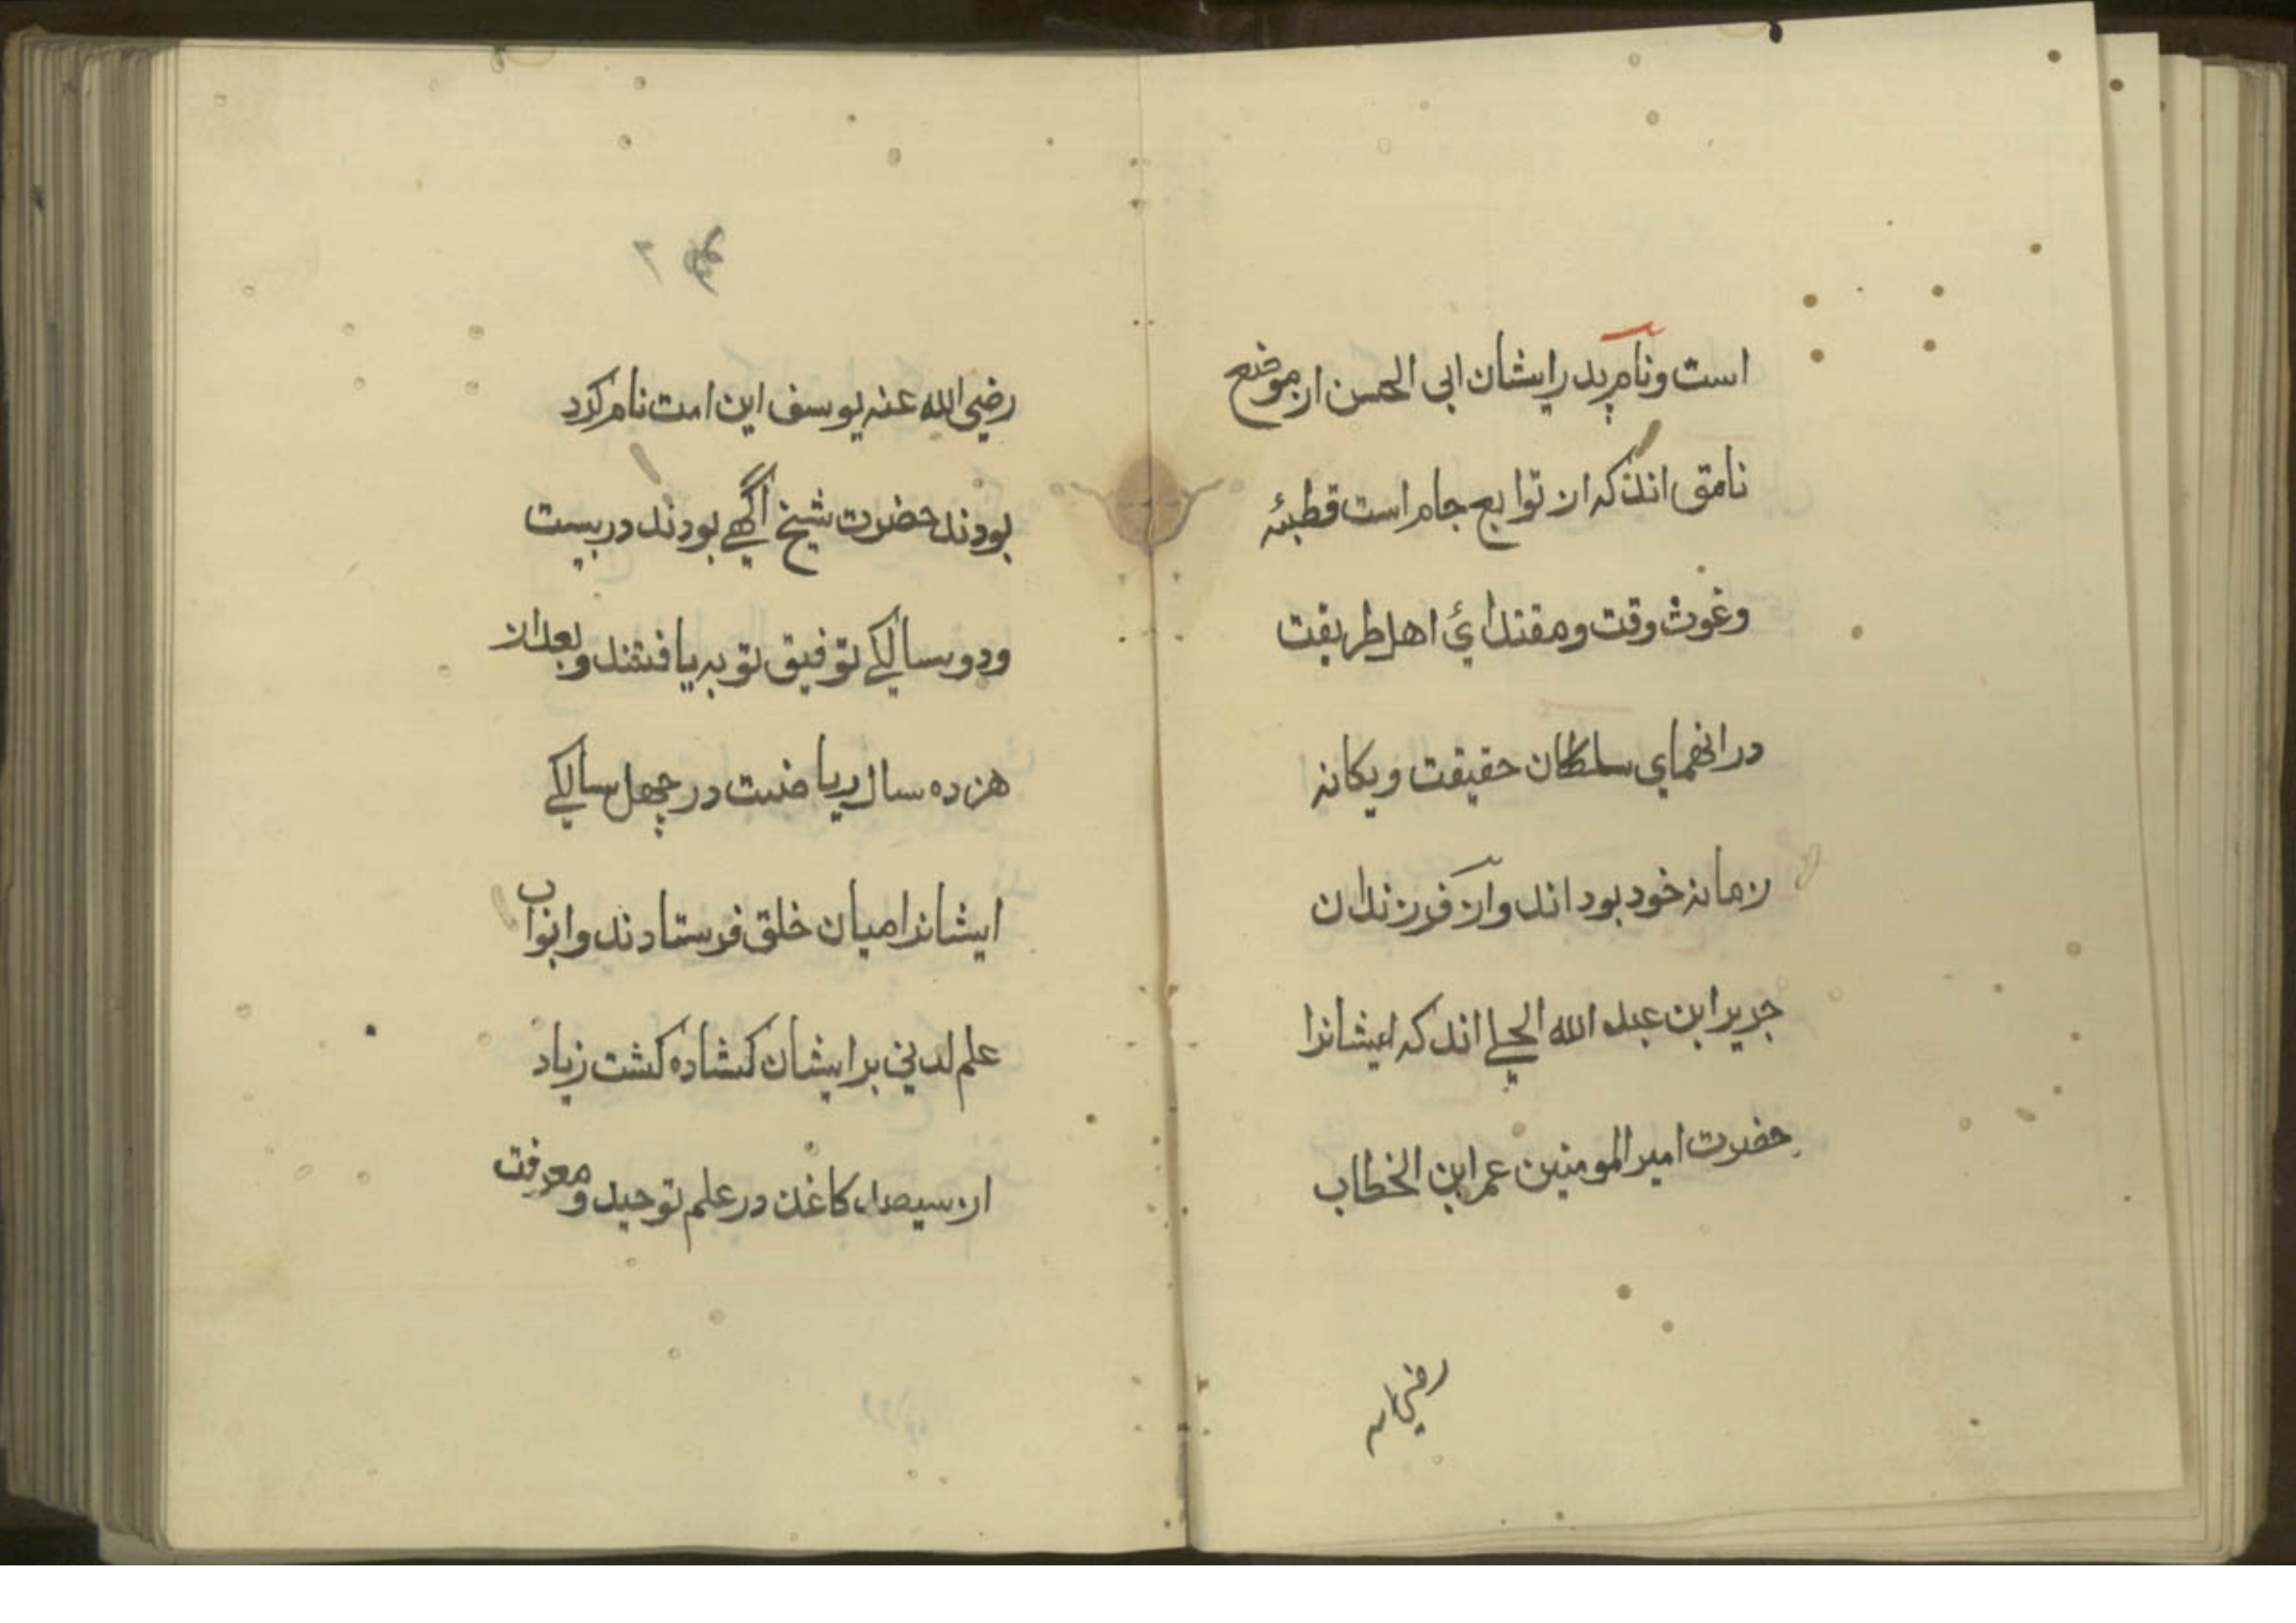 است ونام پدر ایشان ابی الحسن از موضع
نامق اند که از توابع جام است قطبیه
وغوث وقت ومقتدائ اهل طریقت
درانهمای سلطان حقیقت ویکانه
زمانه خود بود اند واز فرزندان
جریر ابن عبد الله الجلے اند که ایشانرا
حضرت امیر المومنین عمر ابن الخطاب
رضی الله
رضی الله عنه یوسف این امت نام کرد
بودند حضرت شیخ اگهے بودند در بیست
ودو سالکے توفیق توبه یافتند وبعد از
هزده سال ریاضت در چهل سالکے
ایشانرا میان خلق فرستادند وابواب
علم لدنی بر ایشان کشاده کشت زیاد
از سیصد کاغذ در علم توحید ومعرفت